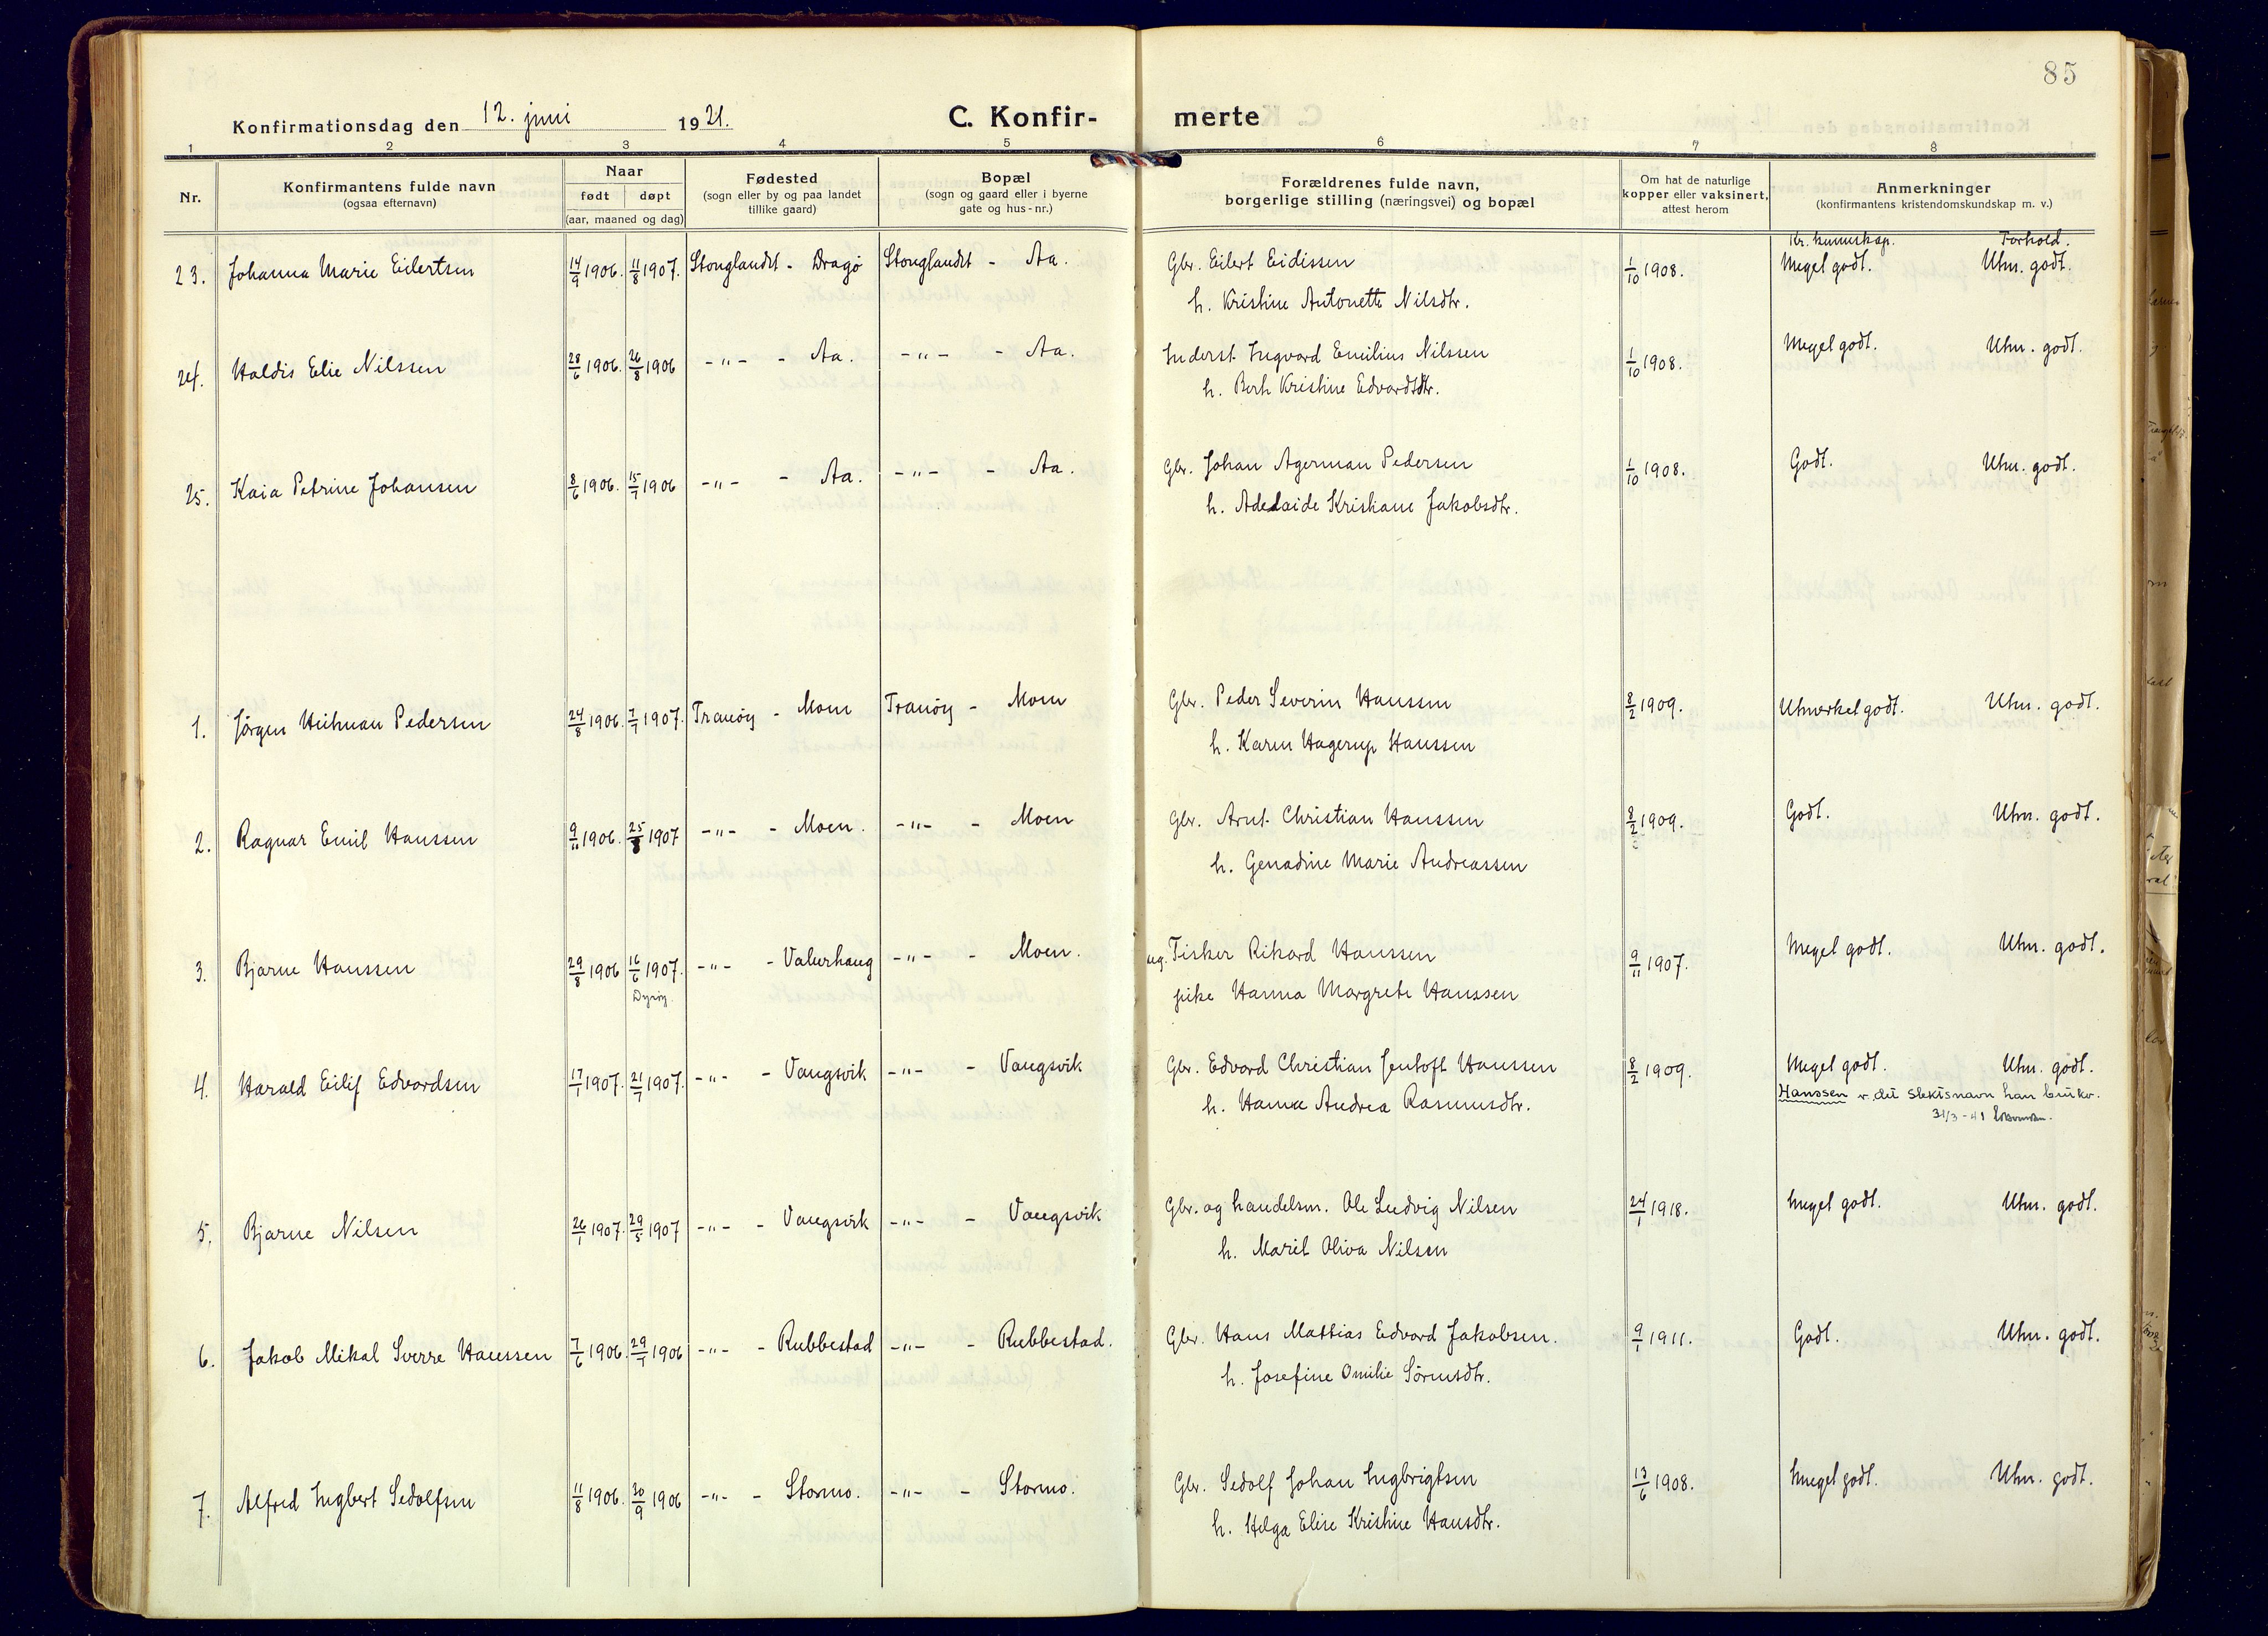 85
Konfirmationsdag den 12. juni 1921.
C. Konfir-
merte
1 2 3 4 5 6 7 8
Nr.
Konfirmantens fulde navn
(ogsaa efternavn)
Naar
født døpt
(aar, maaned og dag)
Fødested
(sogn eller by og paa landet
tillike gaard)
Bopæl
(sogn og gaard eller i byerne
gate og hus-nr.)
Forældrenes fulde navn,
borgerlige stilling (næringsvei) og bopæl
Om hat de naturlige
kopper eller vaksinert,
attest herom
Anmerkninger
(konfirmantens kristendomskundskap m. v.)
Kr. kunnskap. Forhold.
23. Johanna Marie Eilertsen 14/9 1906. 11/8 1907. Stonglandet - Dragø Stonglandet - Aa. Gbr. Eilert Eidissen 1/10 1908. Meget godt. Utm. godt.
h. Kristine Antonette Nilsdtr.
24. Haldis Elie Nilssen 28/6 1906. 26/8 1906 -"- - Aa. -"- - Aa. Inderst Ingvard Emilius Nilssen 1/10 1908. Meget godt. Utm. godt.
h. Berth Kristine Edvardsdtr.
25. Kaia Petrine Johansen 8/6 1906. 15/7 1906 -"- - Aa. -"- - Aa. Gbr. Johan Agerman Pedersen 1/10 1908. Godt. Utm. godt.
h. Adelaide Kristiane Jakobsdtr.
1. Jørgen Heitman Pedersen 24/8 1906. 7/7 1907. Tranöy - Moen Tranöy - Moen Gbr. Peder Severin Hanssen 8/2 1909. Utmerket godt. Utm. godt.
h. Karen Hagerup Hanssen
2. Ragnar Emil Hanssen 9/11 1906. 25/8 1907 -"- - Moen. -"- - Moen Gbr. Arnt Christian Hanssen 8/2 1909. Godt. Utm. godt.
h. Genadine Marie Andreassen
3. Bjarne Hanssen 29/8 1906 16/6 1907. -"- - Valurhaug -"- - Moen. ug. Fisker Rikard Hanssen 9/11 1907. Meget godt. Utm. godt.
Dyröy. pike Hanna Margrete Hanssen
4. Harald Eilif Edvardsen 17/1 1907. 21/7 1907. -"- - Vangsvik -"- - Vangsvik Gbr. Edvard Christian Jentoft Hanssen 8/2 1909. Meget godt. Utm. godt.
h. Hanna Andrea Rasmusdtr. Hanssen er det slektsnavn han bruker.
31/3-41
5. Bjarne Nilsen 26/1 1907. 29/5 1907 -"- - Vangsvik -"- - Vangsvik Gbr. og handelsm. Ole Ludvig Nilsen 24/1 1918. Meget godt. Utm. godt.
h. Marit Oliva Nilsen
6. Jakob Mikal Sverre Hanssen 7/6 1906. 29/7 1906 -"- - Rubbestad -"- - Rubbestad. Gbr. Hans Mathias Edvard Jakobsen. 9/1 1911. Godt. Utm. godt.
h. Josefine Omilie Sörensdtr.
7. Alfred Ingbert Sedolfsen 11/8 1906. 30/9 1906 -"- - Stormo. -"- - Stormo. Gbr. Sedolf Johan Ingbrigtsen 13/6 1908. Meget godt. Utm. godt.
h. Helga Elise Kristine Hansdtr.